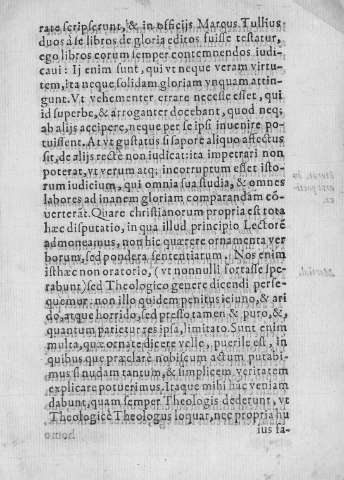 rato scripserunt, & in officijs Marcus Tullius
duos à se libros de gloria editos fuisse testatur,
ego libros eorum semper contemnendos iudi-
caui: Ij enim sunt, qui vt neque veram virtu-
tem, ita neque solidam gloriam vnquam attin-
gunt. Vt vehementer errare necesse esset, qui
id superbe, & arroganter docebant, quod neq;
ab alijs accipere, neque per se ipsi inuenire po-
tuissent. At vt gustatus si sapore aliquo affectus
sit, de alijs rectè non iudicat: ita impetrari non
poterat, vt verum atq; incorruptum esset isto-
rum iudicium, qui omnia sua studia, & omnes
labores ad inanem gloriam comparandam cō-
uerterāt. Quare christianorum propria est tota
hæc disputatio, in qua illud principio Lectorē
admoneamus, non hic quærere ornamenta ver
borum, sed pondera sententiarum. Nos enim
isthæc non oratorio, (vt nonnulli fortasse spe-
rabunt) sed Theologico genere dicendi perse-
quemur. non illo quidem penitus ieiuno, & ari
do, atque horrido, sed presso tamen & puro, &,
quantum patietur res ipsa, limitato. Sunt enim
multa, quæ ornate dicere velle, puerile est, in
quibus que præclarè nobiscum actum putabi-
mus si nudam tantum, & simplicem veritatem
explicare potuerimus. Itaque mihi hac veniam
dabunt, quam semper Theologis dederunt, vt
Theologicè Theologus loquar, nec propria hu
ius fa-